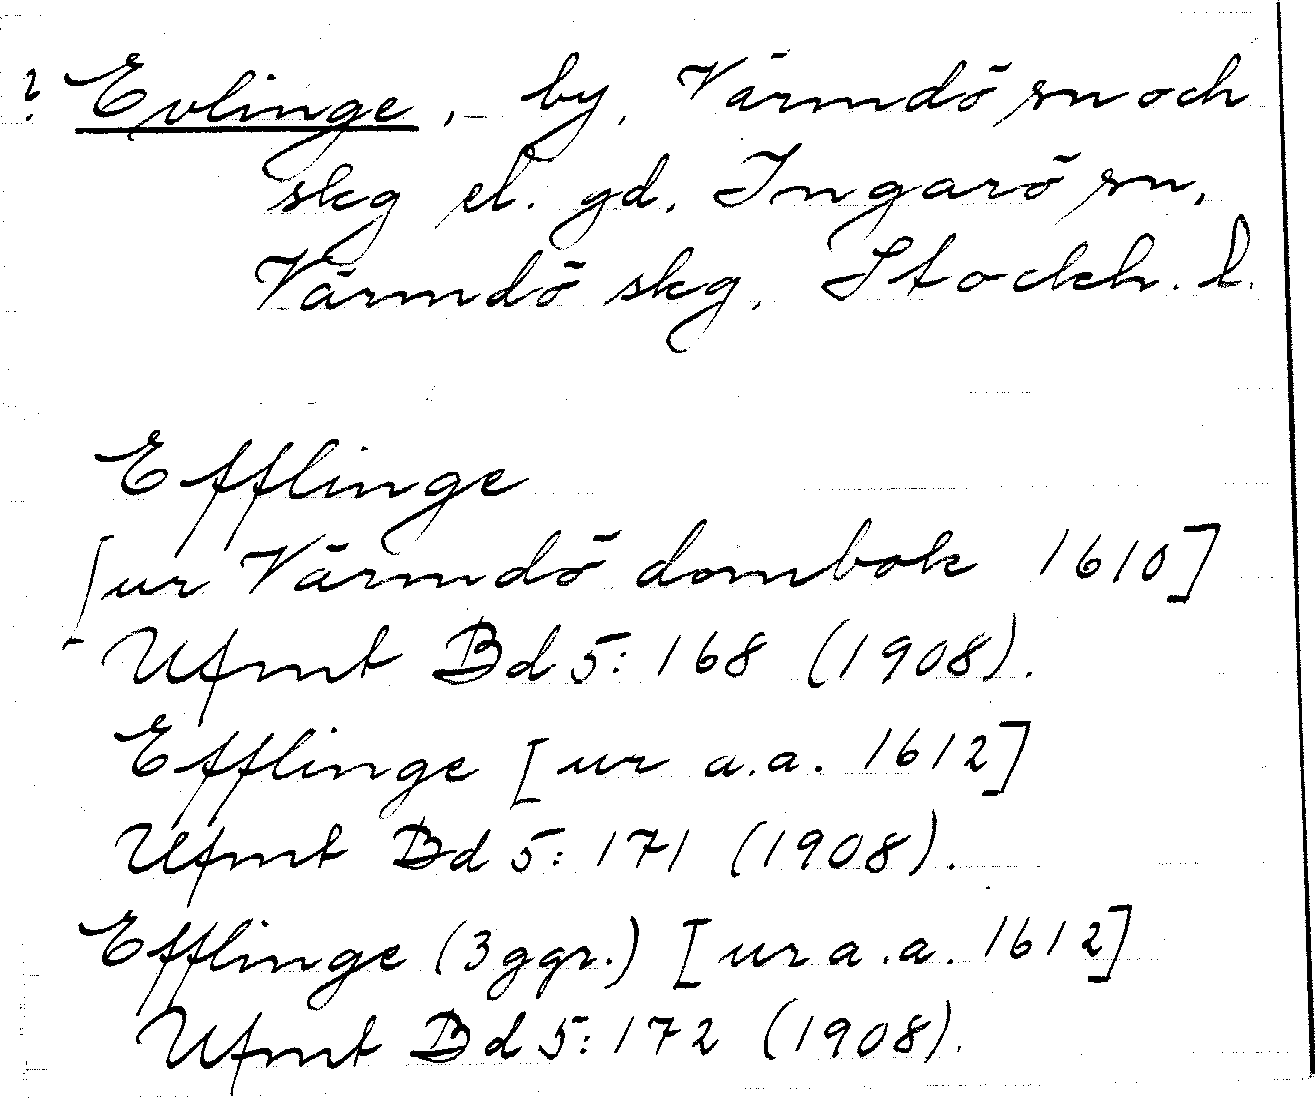 ? Evlinge, by, Värmdö sn och
skg el. gd, Ingarö sn,
Värmdö skg, Stockh. l.
Efflinge
[ur Värmdö dombok 1610]
Ufmt Bd 5: 168 (1908).
Efflinge [ur a.a. 1612]
Ufmt Bd 5: 171 (1908).
Efflinge (3 ggr.) [ur a.a. 1612]
Ufmt Bd 5: 172 (1908).